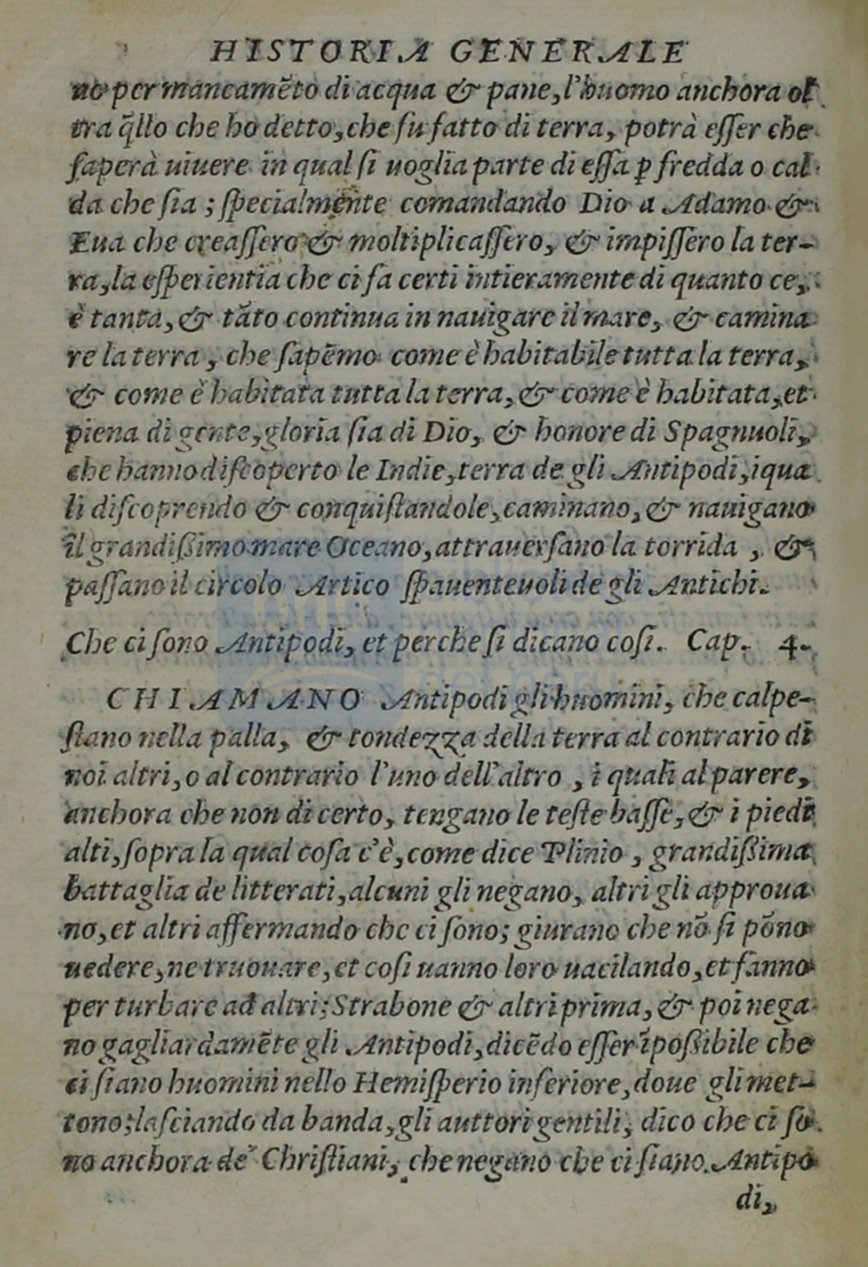 HISTORIA GENERALE
no per mancamẽto di acqua & pane, l'huomo anchora ol
tra q̃llo che ho detto, che fu fatto di terra, potrà eſſer che
ſaperà uiuere in qual ſi uoglia parte di eſſa p fredda o cal
da che ſia; ſpecialmẽnte comandando Dio a Adamo &
Eua che creaſſero & moltiplicaſſero, & impiſſero la ter-
ra, la eſperientia che ci fa certi intieramente di quanto ce,
è tanta, & tãto continua in nauigare il mare, & camina
re la terra, che ſapẽmo come è habitabile tutta la terra,
& come è habitata tutta la terra, & come è habitata, et
piena di gente, gloria ſia di Dio, & honore di Spagnuoli,
che hanno diſcoperto le Indie, terra de gli Antipodi, i qua
li diſcoprendo & conquiſtandole, caminano, & nauigano
il grandiſſimo mare Oceano, attrauerſano la torrida, &
paſſano il circolo Artico ſpauenteuoli de gli Antichi.
Che ci ſono Antipodi, et perche ſi dicano coſi. Cap. 4.
CHIAMANO Antipodi gli huomini, che calpe-
ſtano nella palla, & tondezza della terra al contrario di
noi altri, o al contrario l'uno dell'altro, i quali al parere,
anchora che non di certo, tengano le teſte baſſe, & i piedi
alti, ſopra la qual coſa c'è, come dice Plinio, grandiſſima
battaglia de litterati, alcuni gli negano, altri gli approua
no, et altri affermando che ci ſono; giurano che nõ ſi põno
uedere, ne truouare, et coſi uanno loro uacilando, et fanno
per turbare ad altri; Strabone & altri prima, & poi nega
no gagliardamẽte gli Antipodi, dicẽdo eſſer ĩpoſſibile che
ci ſiano huomini nello Hemiſperio inferiore, doue gli met-
tono; laſciando da banda, gli auttori gentili, dico che ci ſo
no anchora de' Chriſtiani, che negano che ci ſiano. Antipo
di,